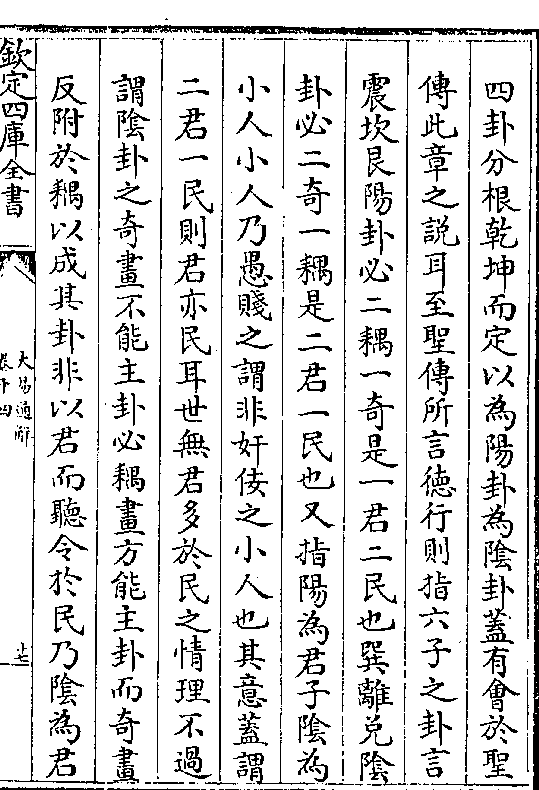 四卦分根乾坤而定以為陽卦為陰卦蓋有㑹於聖
傳此章之説耳至聖傳所言徳行則指六子之卦言
震坎艮陽卦必二耦一奇是一君二民也巽離兑陰
卦必二奇一耦是二君一民也又指陽為君子陰為
小人小人乃愚賤之謂非奸佞之小人也其意蓋謂
二君一民則君亦民耳世無君多於民之情理不過
謂陰卦之奇畫不能主卦必耦畫方能主卦而奇畫
反附於耦以成其卦非以君而聽令於民乃陰為君
欽定四庫全書
大易通解
卷十四
十七